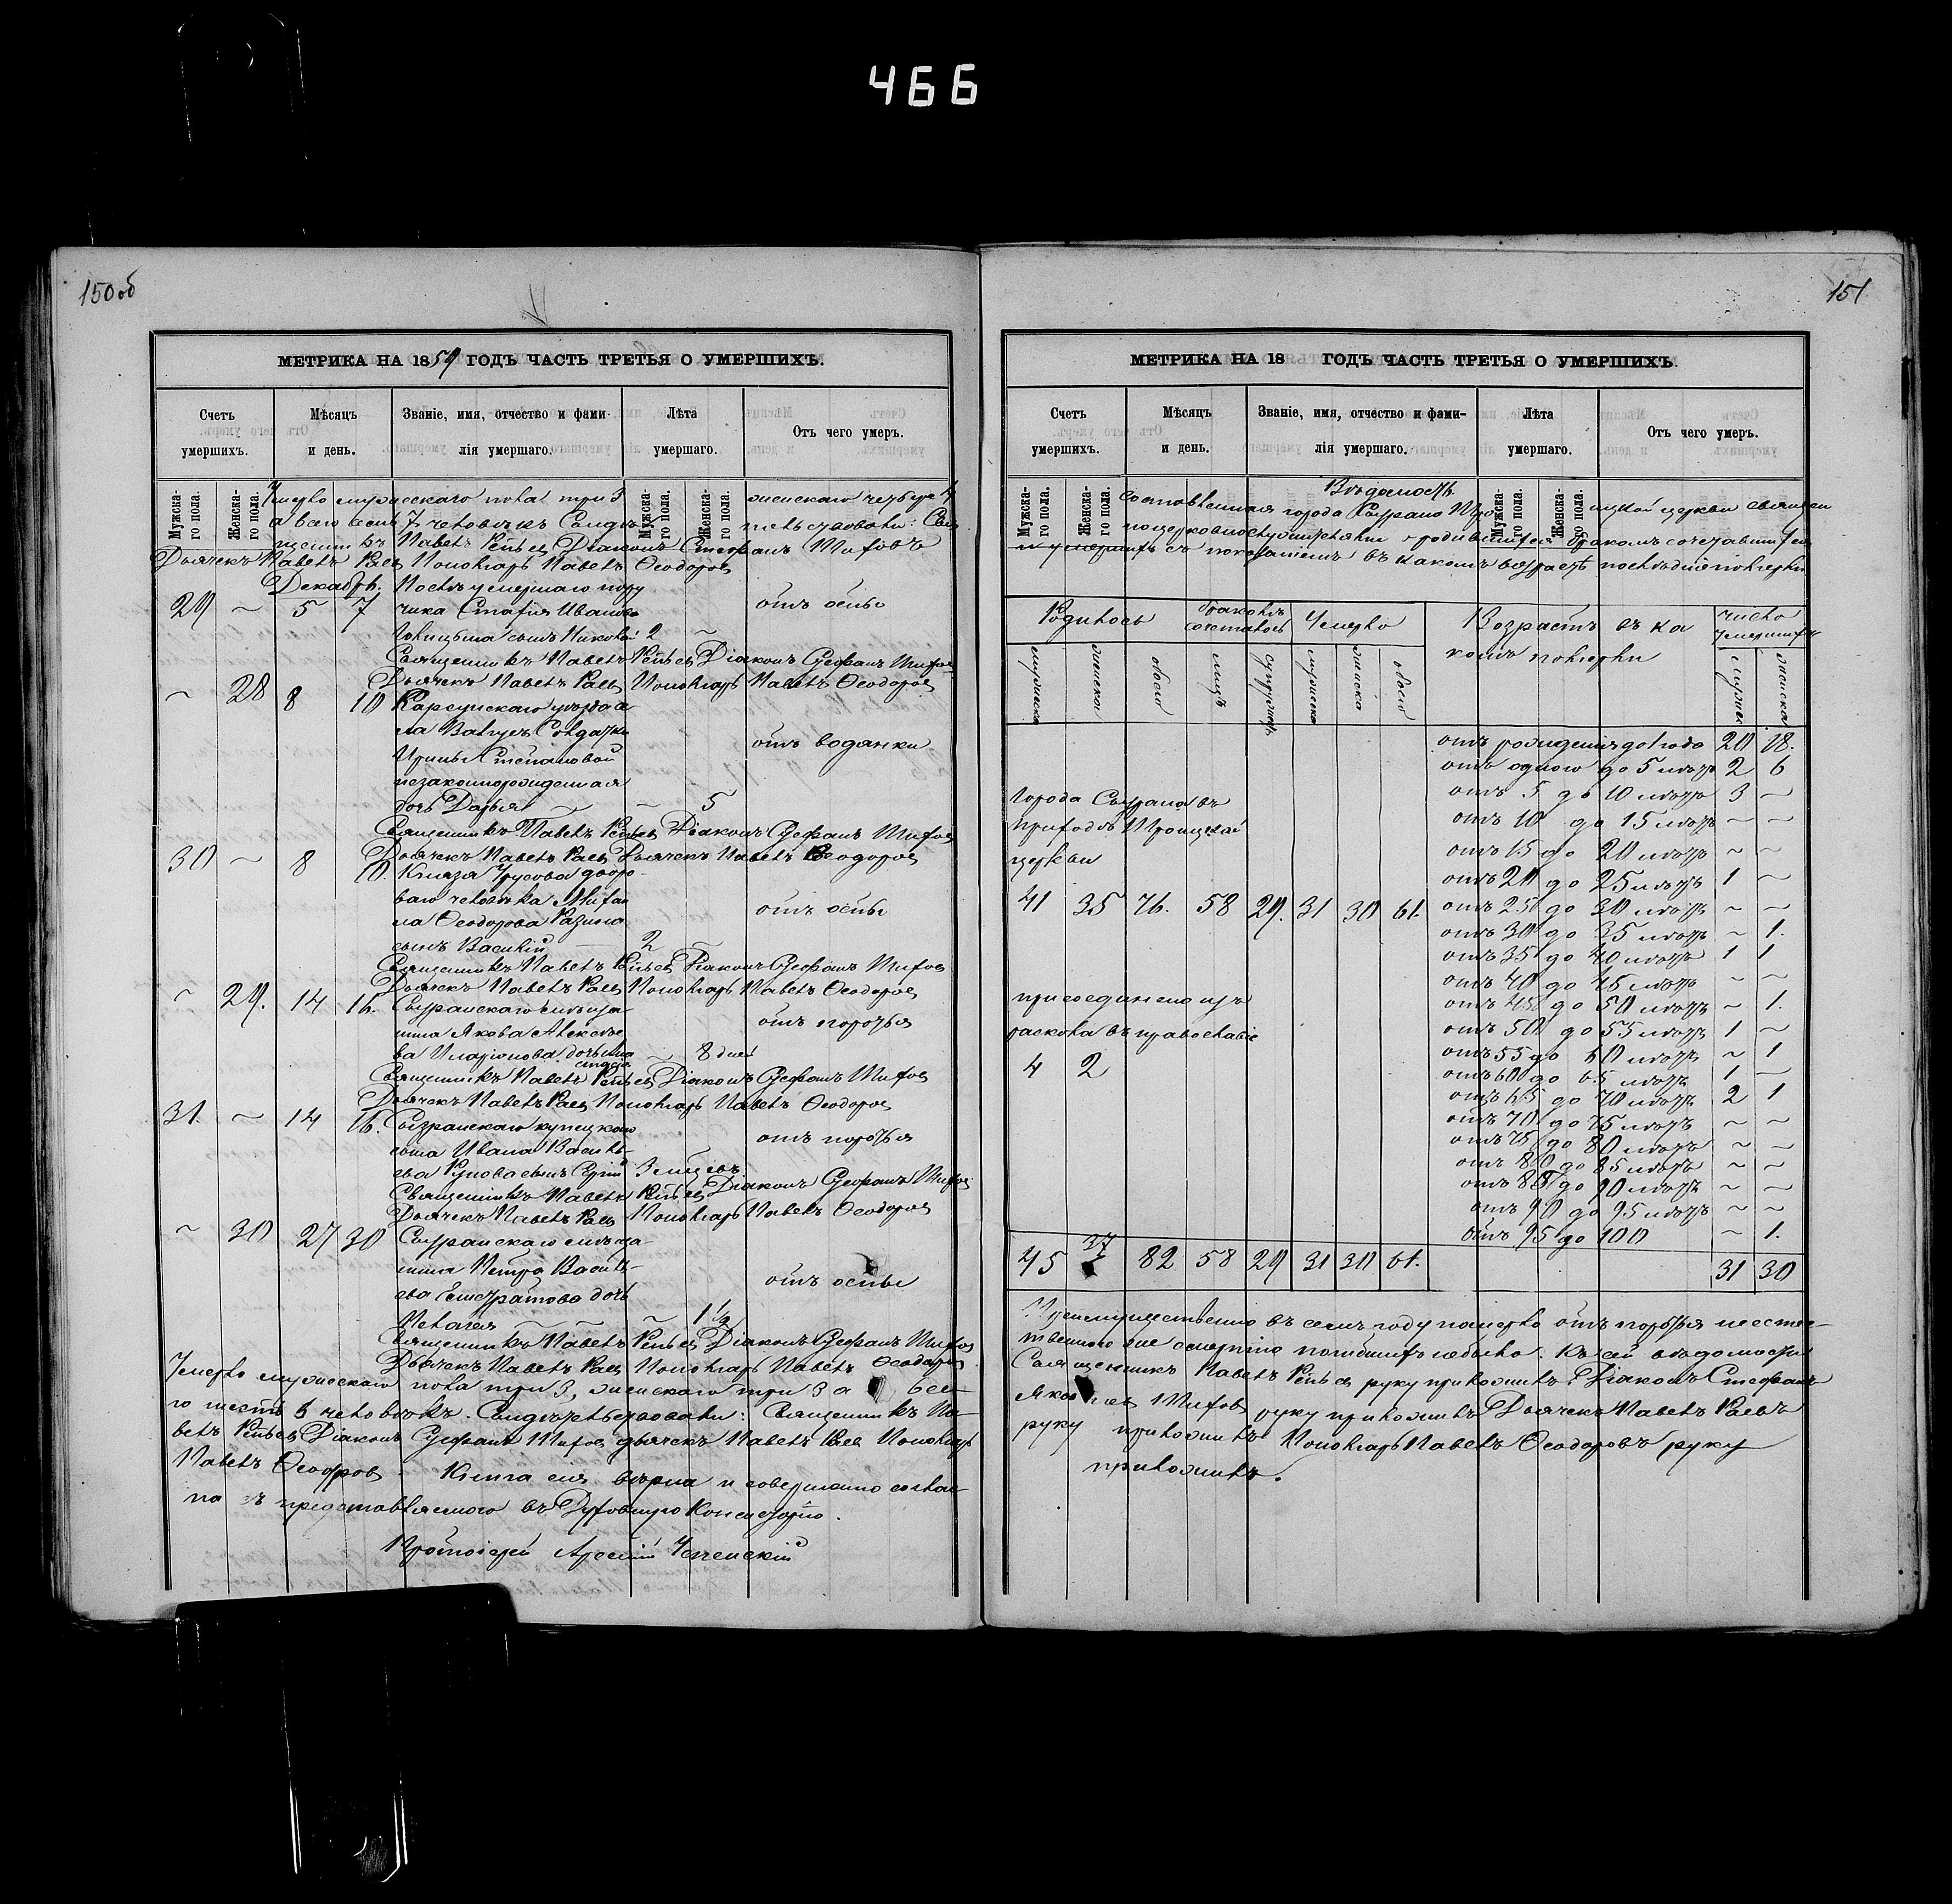 466
150об
МЕТРИКА НА 1859 ГОДЪ ЧАСТЬ ТРЕТЬЯ О УМЕРШИХЪ.
Счетъ умершихъ.
Мѣсяцъ и день.
Званіе, имя, отчество и фами-
лія умершаго.
Лѣта умершаго.
Отъ чего умеръ.
Мужска-
го пола.
Женска-
го пола.
Мужска-
го пола.
Женска-
го пола.
Умерло мужескаго пола три 3 женскаго четыре 4
а всего семь 7 человѣкъ
щенникъ Павелъ Діаконъ Стефанъ
Дьячекъ Павелъ Раевъ Пономарь Павелъ Ѳеодоровъ
Декабрь. Послѣ умершаго пору
29 ~ 5 7 чика Иванова отъ оспы
сынъ Николай 2 ~
Священникъ Павелъ Діаконъ Стефанъ
Дьячекъ Павелъ Раевъ Пономарь Павелъ Ѳеодоровъ
~ 28 8 10 Карсунскаго уѣзда се
ла отъ водянки
Ирины Степановой
незаконнорожденная
дочь Дарья ~ 5
Священникъ Павелъ Діаконъ Стефанъ
Дьячекъ Павелъ Раевъ Дьячекъ Павелъ Ѳеодоровъ
30 ~ 8 10. Князя Урусова дворо-
ваго человѣка отъ оспы
на Ѳеодорова Разина
сынъ Василій 2 ~
Священникъ Павелъ Діаконъ Стефанъ
Дьячекъ Павелъ Раевъ Пономарь Павелъ Ѳеодоровъ
~ 29. 14 16. Сызранскаго мѣща-
нина Якова Алексѣе- отъ
ва Иларіонова дочь ~ 8 дней
Священникъ Павелъ Діаконъ Стефанъ
Дьячекъ Павелъ Раевъ Пономарь Павелъ Ѳеодоровъ
31. ~ 14 16. Сызранскаго купецкаго
сына Ивана Василь- отъ
ева сынъ Сергій 3 мѣсяцевъ
Священникъ Павелъ Діаконъ Стефанъ
Дьячекъ Павелъ Раевъ Пономарь Павелъ Ѳеодоровъ
~ 30 27 30 Сызранскаго мѣща-
нина Петра Василь- отъ оспы
ева дочь
Пелагея ~ 1½
Священникъ Павелъ Діаконъ Стефанъ
Дьячекъ Павелъ Раевъ Пономарь Павелъ Ѳеодоровъ
Умерло мужескаго пола три 3, женскаго три 3 а все-
го шесть 6 человѣкъ. Священникъ Па-
велъ Діаконъ Стефанъ дьячекъ Павелъ Раевъ Пономарь
Павелъ Ѳеодоровъ Книга сія вѣрна и совершенно соглас-
на съ представляемою въ Духовную Консисторію.
Протоіерей Арсеній Успенскій
151
МЕТРИКА НА 18 ГОДЪ ЧАСТЬ ТРЕТЬЯ О УМЕРШИХЪ.
Счетъ умершихъ.
Мѣсяцъ и день.
Званіе, имя, отчество и фами-
лія умершаго.
Лѣта умершаго.
Отъ чего умеръ.
Мужска-
го пола.
Женска-
го пола.
Мужска-
го пола.
Женска-
го пола.
Вѣдомость
составленная города Сызрана Тро ицкой церкви священно
церковнослужителями о родившихся бракомъ сочетавшихся
и умершихъ съ показаніемъ въ какомъ возрастѣ послѣдніе померли
Родилось
бракомъ сочеталось
Умерло
Возрастъ въ ка
комъ померли
число умершихъ
мужеска женска обоего лицъ супружествъ мужеска женска обоего мужеска женска
отъ рожденія до 1 года 20 18.
отъ одного до 5 лѣтъ 2 6
отъ 5 до 10 лѣтъ 3 ~
отъ 10 до 15 лѣтъ ~ ~
отъ 15 до 20 лѣтъ ~ ~
отъ 20 до 25 лѣтъ 1 ~
отъ 25 до 30 лѣтъ ~ ~
отъ 30 до 35 лѣтъ ~ 1.
отъ 35 до 40 лѣтъ 1 1
отъ 40 до 45 лѣтъ ~ ~
отъ 45 до 50 лѣтъ ~ 1.
отъ 50 до 55 лѣтъ 1 ~
отъ 55 до 60 лѣтъ ~ 1
отъ 60 до 65 лѣтъ 1 ~
отъ 65 до 70 лѣтъ 2 1
отъ 70 до 75 лѣтъ ~ ~
отъ 75 до 80 лѣтъ ~ ~
отъ 80 до 85 лѣтъ ~ ~
отъ 85 до 90 лѣтъ ~ ~
отъ 90 до 95 лѣтъ ~ ~
отъ 95 до 100 ~ 1.
Города Сызрана въ
приходѣ Троицкой
церкви
41 35 76. 58 29. 31 30 61.
присоединено изъ
раскола въ православіе
4 2
45 37 82 58 29 31 30 61. 31 30
Преимущественно въ семъ году померло отъ неесте-
ственною же смертію погибшихъ небыло. Къ сей вѣдомости
Священникъ Павелъ руку приложилъ. Діаконъ Стефанъ
руку приложилъ Дьячекъ Павелъ Раевъ
руку приложилъ Пономарь Павелъ Ѳеодоровъ руку
приложилъ.